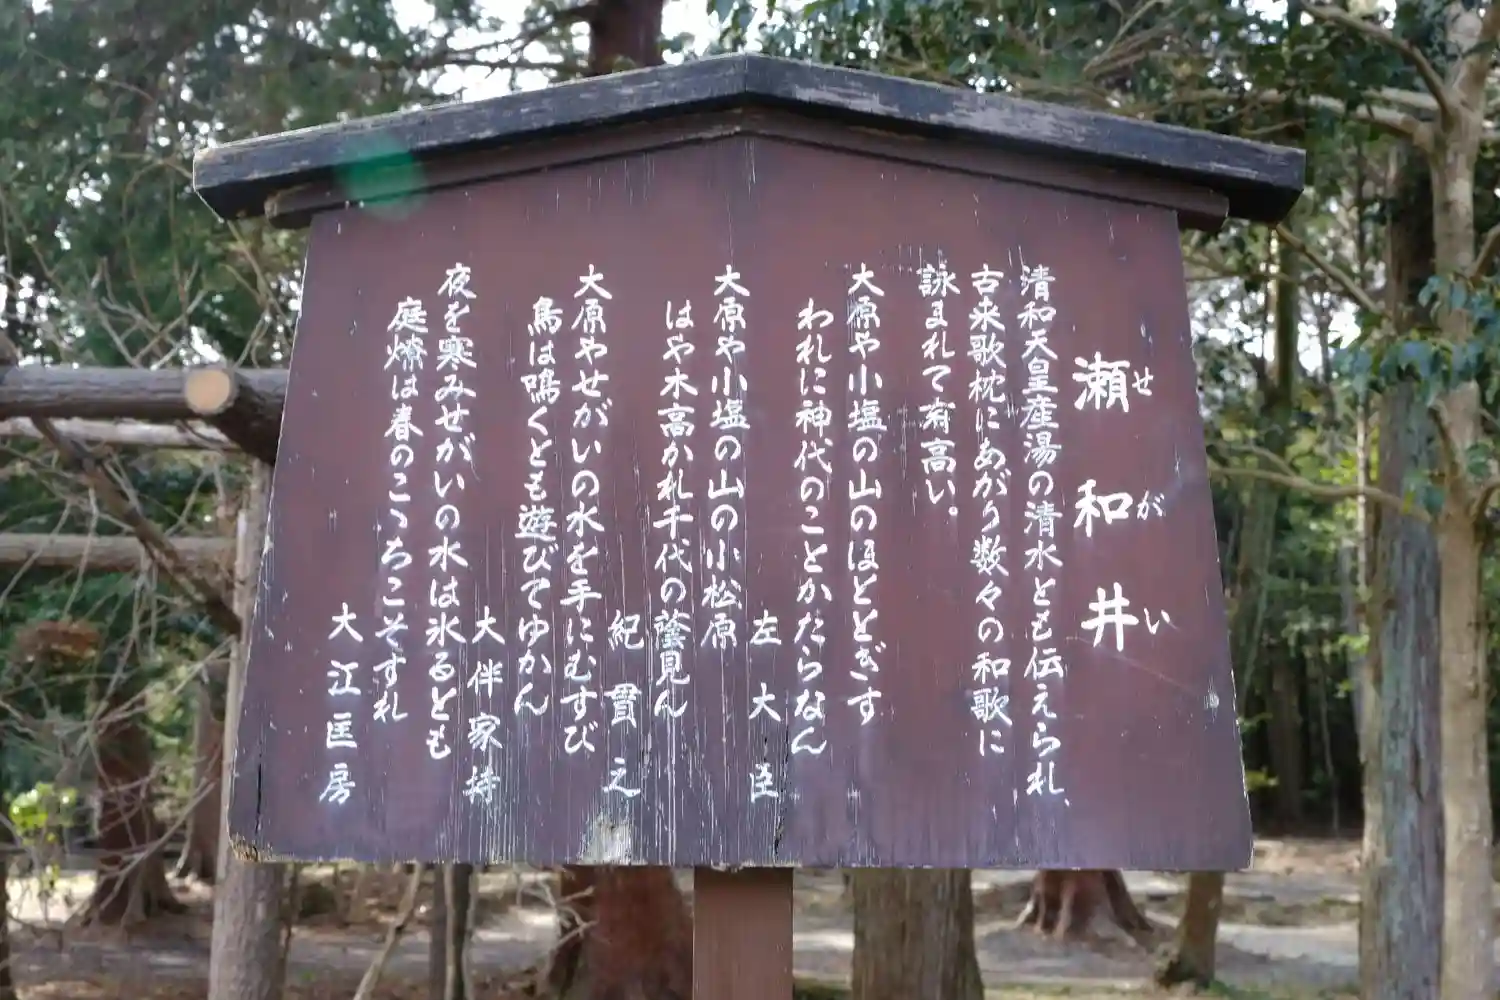 瀬和井
せがい
清和天皇産湯の清水とも伝えられ、
古来歌枕にあがり数々の和歌に
詠まれて有高い。
大原や小塩の山のほとゝぎす
われに神代のことかたらなん
左大臣
大原や小塩の山の小松原
はや木高かれ千代の蔭見ん
紀貫之
大原やせがいの水を手にむすび
鳥は鳴くとも遊びてゆかん
大伴家持
夜を寒みせがいの水は氷るとも
庭燎は春のこゝちこそすれ
大江匡房